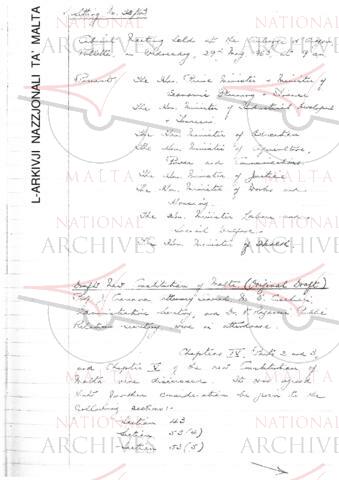 L-ARKIVJI NAZZJONALI TA MALTA
NATIONAL
ARCHIVES
MALTA
Sitting No.
Cabinet Meeting held at the
Wednesday, 29th May, 1963, at 9 am
Present: The Hon. Prime Minister & Minister of
Economic Planning & Finance
The Hon. Minister of Industrial Development
& Tourism
The Hon. Minister of Education
The Hon. Minister of Agriculture,
Power and Communications
The Hon. Minister of Justice
The Hon. Minister of Works and
Housing
The Hon. Minister Labour and
Social Welfare
The Hon. Minister of Health
Draft New Constitution of Malta (Original Draft)
Prof. J. Cremona attorney
Secretary, and Dr.
Relations were in attendance.
Chapters IV Parts 2 and 3,
and Chapter V of the new Constitution of
Malta were discussed. It was agreed
that further consideration be given to the
following sections:-
Section 43
Section 53 (4)
Section 53 (5)